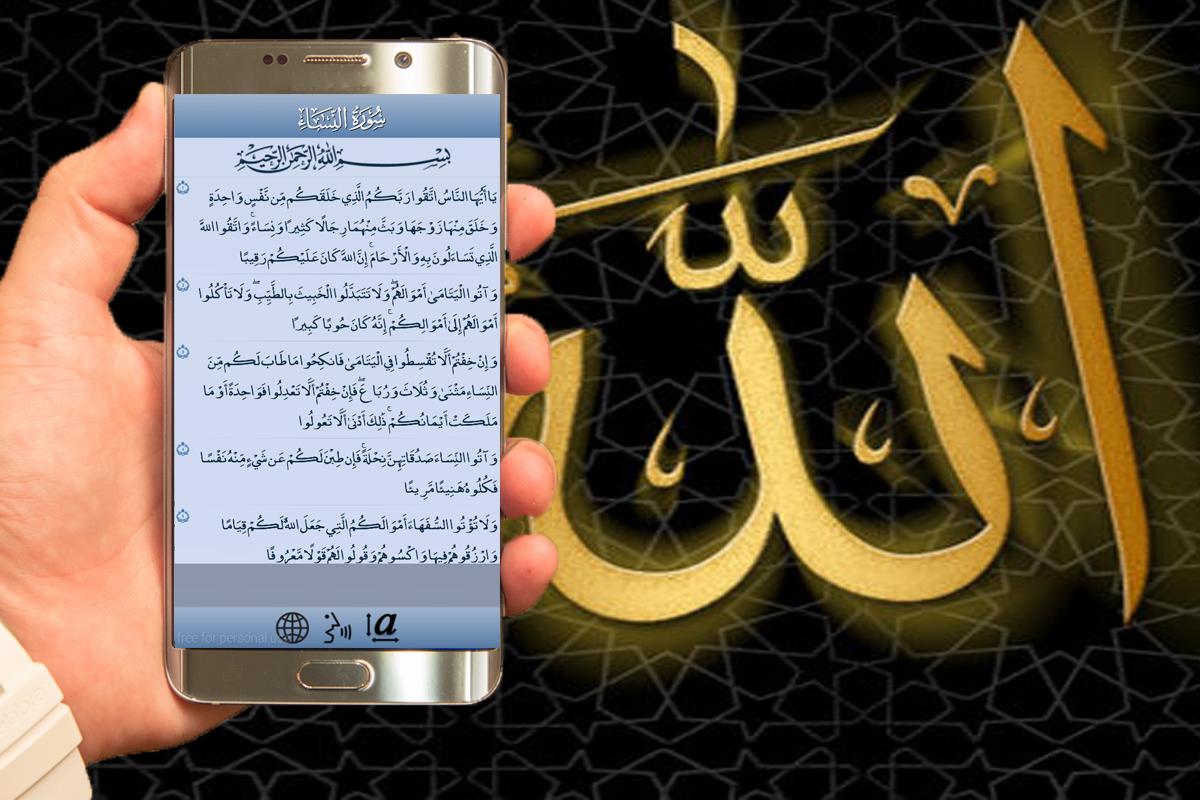 سُورَةُ النِّسَاءِ
بِسْمِ اللَّهِ الرَّحْمَٰنِ الرَّحِيمِ
يَا أَيُّهَا النَّاسُ اتَّقُوا رَبَّكُمُ الَّذِي خَلَقَكُم مِّن نَّفْسٍ وَاحِدَةٍ
وَخَلَقَ مِنْهَا زَوْجَهَا وَبَثَّ مِنْهُمَا رِجَالًا كَثِيرًا وَنِسَاءً ۚ وَاتَّقُوا اللَّهَ
الَّذِي تَسَاءَلُونَ بِهِ وَالْأَرْحَامَ ۚ إِنَّ اللَّهَ كَانَ عَلَيْكُمْ رَقِيبًا
وَآتُوا الْيَتَامَىٰ أَمْوَالَهُمْ ۖ وَلَا تَتَبَدَّلُوا الْخَبِيثَ بِالطَّيِّبِ ۖ وَلَا تَأْكُلُوا
أَمْوَالَهُمْ إِلَىٰ أَمْوَالِكُمْ ۚ إِنَّهُ كَانَ حُوبًا كَبِيرًا
وَإِنْ خِفْتُمْ أَلَّا تُقْسِطُوا فِي الْيَتَامَىٰ فَانكِحُوا مَا طَابَ لَكُم مِّنَ
النِّسَاءِ مَثْنَىٰ وَثُلَاثَ وَرُبَاعَ ۖ فَإِنْ خِفْتُمْ أَلَّا تَعْدِلُوا فَوَاحِدَةً أَوْ مَا
مَلَكَتْ أَيْمَانُكُمْ ۚ ذَٰلِكَ أَدْنَىٰ أَلَّا تَعُولُوا
وَآتُوا النِّسَاءَ صَدُقَاتِهِنَّ نِحْلَةً ۚ فَإِن طِبْنَ لَكُمْ عَن شَيْءٍ مِّنْهُ نَفْسًا
فَكُلُوهُ هَنِيئًا مَّرِيئًا
وَلَا تُؤْتُوا السُّفَهَاءَ أَمْوَالَكُمُ الَّتِي جَعَلَ اللَّهُ لَكُمْ قِيَامًا
وَارْزُقُوهُمْ فِيهَا وَاكْسُوهُمْ وَقُولُوا لَهُمْ قَوْلًا مَّعْرُوفًا
a
free for personal u
الله